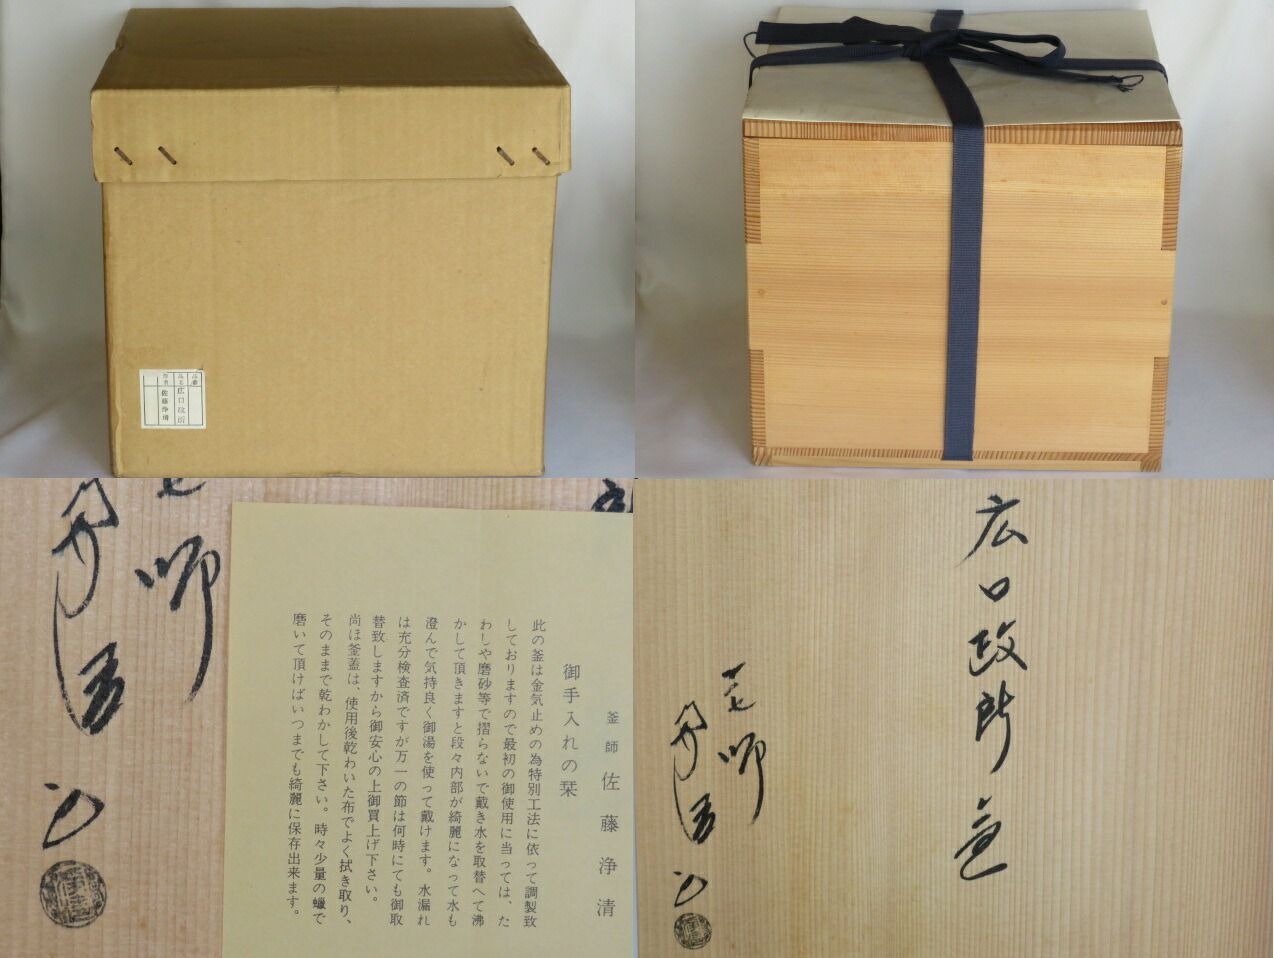 品番
品名
広口政所
作者
佐藤浄清
師
釜師 佐藤浄清
御手入れの栞
此の釜は金気止めの為特別工法に依って調製致
しておりますので最初の御使用に当っては、た
わしや磨砂等で摺らないで戴き水を取替へて沸
かして頂きますと段々内部が綺麗になって水も
澄んで気持良く御湯を使って戴けます。水漏れ
は充分検査済ですが万一の節は何時にても御取
替致しますから御安心の上御買上げ下さい。
尚ほ釜蓋は、使用後乾わいた布でよく拭き取り、
そのままで乾わかして下さい。時々少量の蠟で
磨いて頂けばいつまでも綺麗に保存出来ます。
広口政所釜
師